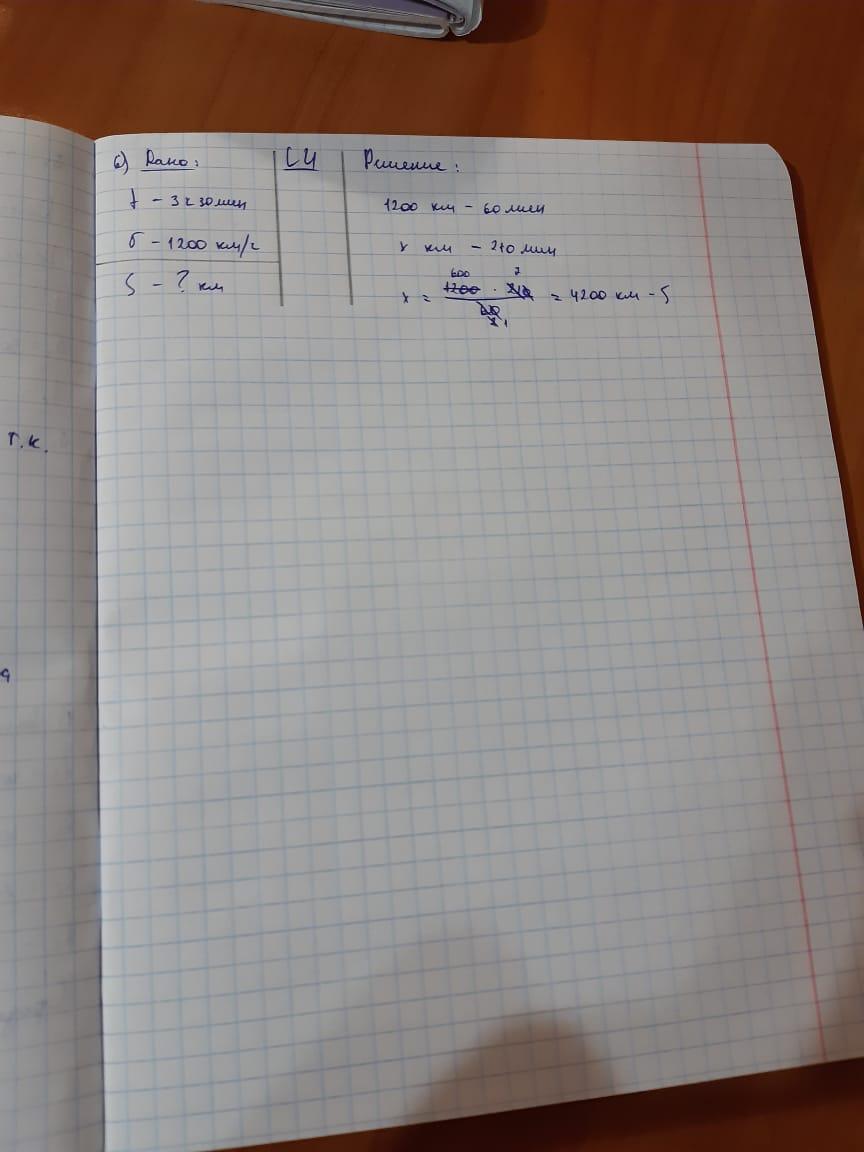 6) Дано:
t - 3 ч 30 мин
υ - 1200 км/ч
S - ? км
СИ
Решение:
1200 км - 60 мин
x км - 210 мин
600 7
x = 1200 · 210 / 60 = 4200 км - S
2 1
т.к.